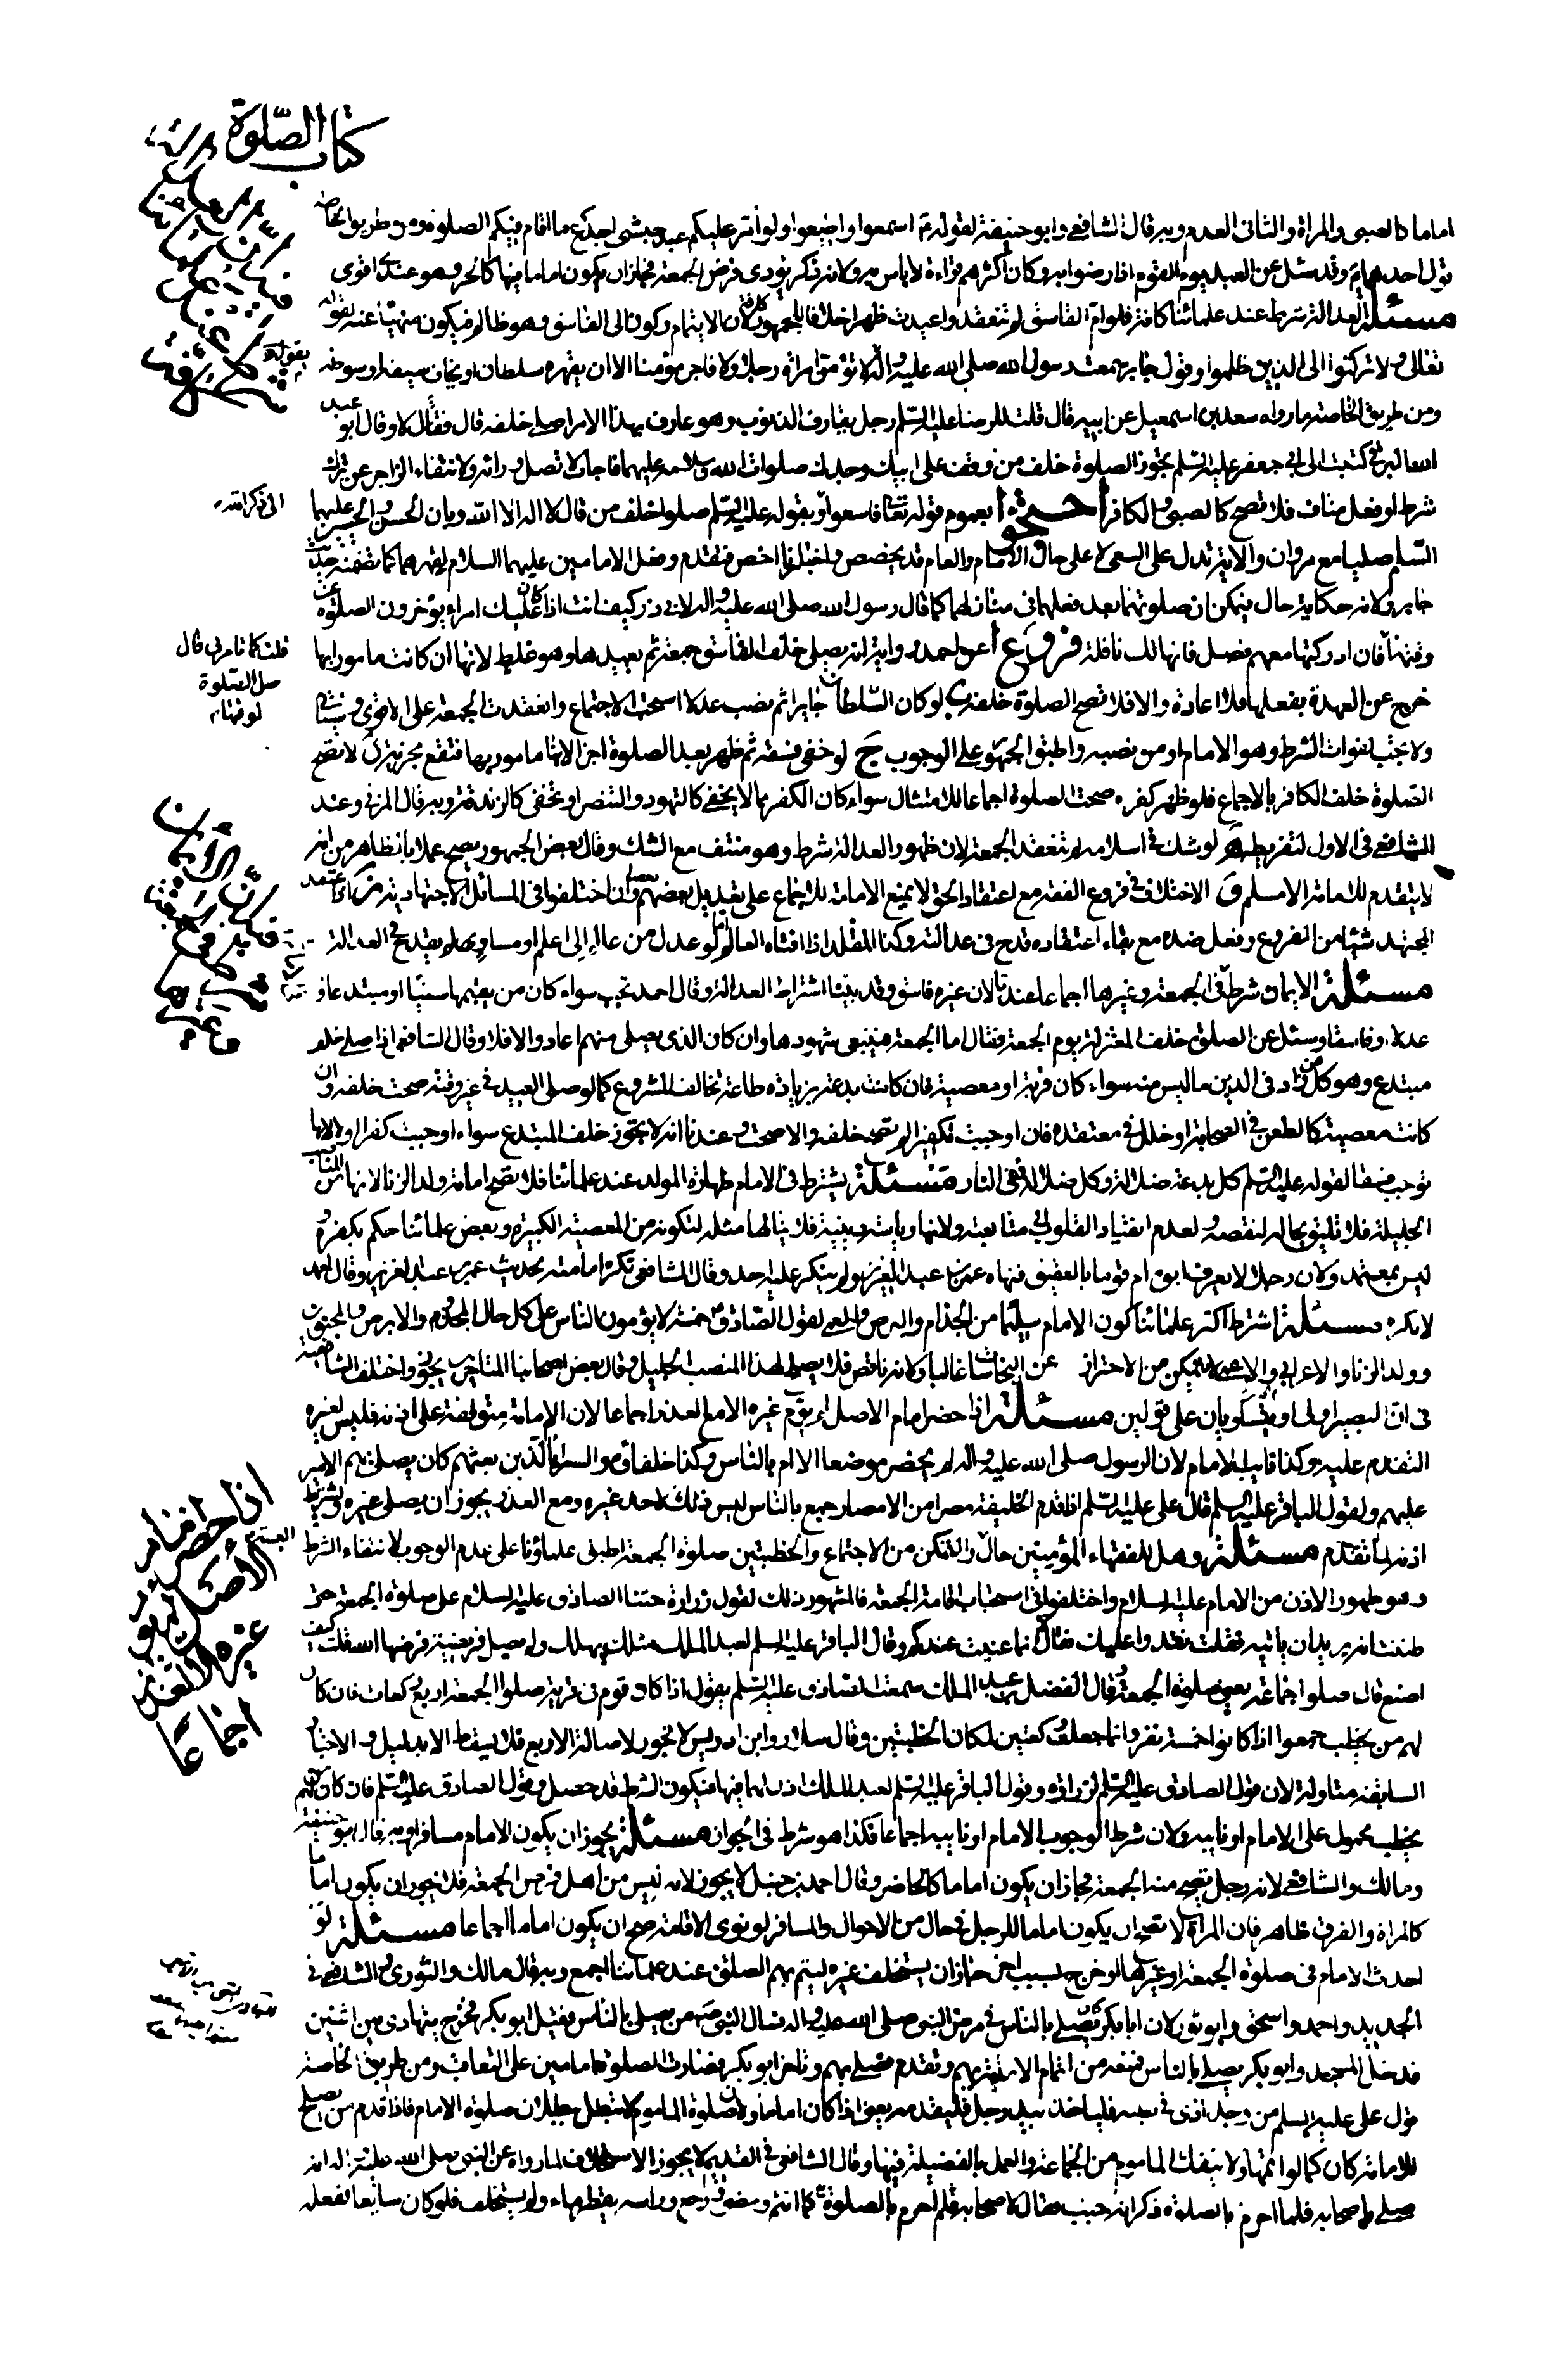 كتاب الصّلوة
اماما كالصبى والمراة والثانى العدم وبه قال الشافعى وابو حنيفة لقوله ع اسمعوا واطيعوا ولو أمر عليكم عبد حبشى اجدع ما اقام فيكم الصلوة ومن طريق الخاصة
قول احدهما ع وقد سئل عن العبد يؤم القوم اذا رضوا به وكان اكثرهم قراءة لا باس به ولانه ذكر يؤدى فرض الجمعة فجاز ان يكون اماما فيها كالحر وهو عندى اقوى
مسئلة العدالة شرط عند علمائنا كافة فلو ام الفاسق لم تنعقد واعيدت ظهرا خلافا للجمهور كافة لان الايتمام ركون الى الفاسق وهو ظالم فيكون منهيا عنه لقوله
تعالى ولا تركنوا الى الذين ظلموا وقول جابر سمعت رسول الله صلى الله عليه وآله لا تؤمن امراة رجلا ولا فاجر مؤمنا الا ان يقهره سلطان او يخاف سيفه او سوطه
ومن طريق الخاصة ما رواه سعد بن اسمعيل عن ابيه قال قلت للرضا عليه السّلم رجل يقارف الذنوب وهو عارف بهذا الامر اصلى خلفه قال فقال لا وقال ابو عبد
الله البرقى كتبت الى ابى جعفر عليه السّلم تجوز الصلوة خلف من وقف على ابيك وجدك صلوات الله وسلامه عليهما فاجاب لا تصل وراءه ولانتفاء الزاجر عن ترك
شرط او فعل مناف فلا تصح كالصبى والكافر احتجوا بعموم قوله تعالى فاسعوا وبقوله عليه السّلم صلوا خلف من قال لا اله الا الله وبان الحسن والحسين عليهما
السّلم صليا مع مروان والآية تدل على السعى لا على حال الامام والعام قد يخصص واخبارنا اخص فتقدم وفعل الامامين عليهما السلام لقهرهما كما تضمنه حديث
جابر ولانه حكاية حال فيمكن ان صلوتهما بعد فعلهما فى منازلهما كما قال رسول الله صلى الله عليه وآله لابى ذر كيف انت اذا كان عليك امراء يؤخرون الصلوة عن
وقتها فان ادركتها معهم فصل فانها لك نافلة فروع ا عن احمد رواية انه يصلى خلف الفاسق جمعة ثم يعيدها وهو غلط لانها ان كانت مامورا بها
خرج عن العهدة بفعلها فلا اعادة والا فلا تصح الصلوة خلفه ب لو كان السّلطان جايرا ثم نصب عدلا استحب الاجتماع وانعقدت الجمعة على الاقوى وسياتى
ولا يجب لفوات الشرط وهو الامام او من نصبه واطبق الجمهور على الوجوب ج لو خفى فسقه ثم ظهر بعد الصلوة اجزا لانها مامور بها فتقع مجزية د لا تصح
الصّلوة خلف الكافر بالاجماع فلو ظهر كفره صحت الصلوة اجماعا للامتثال سواء كان الكفر مما لا يخفى كالتهود والتنصر او يخفى كالزندقة وبه قال المزنى وعند
الشافعى فى الاول لتفريطه ه لو شك فى اسلامه لم تنعقد الجمعة لان ظهور العدالة شرط وهو منتف مع الشك وقال بعض الجمهور يصح عملا بالظاهر من انه
لا يتقدم للامامة الا مسلم و الاختلاف فى فروع الفقه مع اعتقاد الحق لا يمنع الامامة للاجماع على تعديل بعضهم بعضا وان اختلفوا فى المسائل الاجتهادية ز اذا اعتقد
المجتهد شيئا من الفروع وفعل ضده مع بقاء اعتقاده قدح فى عدالته وكذا المقلد اذا افتاه العالم اما لو عدل من عالم الى اعلم او مساو له لم يقدح فى العدالة
مسئلة الايمان شرط فى الجمعة وغيرها اجماعا عندنا لان غيره فاسق وقد بيّنا اشتراط العدالة وقال احمد تجب سواء كان من يقيمها سنيا او مبتدعا او
عدلا او فاسقا وسئل عن الصلوة خلف المعتزلة يوم الجمعة فقال اما الجمعة فينبغى شهودها وان كان الذى يصلى منهم اعاد والا فلا وقال الشافعى اذا صلى خلف
مبتدع وهو كل من زاد فى الدين ما ليس منه سواء كان قربة او معصية فان كانت بدعته بزيادة طاعة تخالف المشروع كما لو صلى العيد فى غير وقته صحت خلفه وان
كانت معصية كالطعن فى الصحابة او خلل فى معتقده فان اوجبت تكفيرا لم تصح خلفه والا صحت وعندنا انه لا يجوز خلف المبتدع سواء اوجبت كفرا او لا لانها
توجب فسقا لقوله عليه السّلم كل بدعة ضلالة وكل ضلالة فى النار مسئلة يشترط فى الامام طهارة المولد عند علمائنا فلا تصح امامة ولد الزنا لانها من المناصب
الجليلة فلا تليق بحاله لنقصه ولعدم انقياد القلوب الى متابعته ولانها رياسة دينية فلا ينالها مثله لتكونه من المعصية الكبيرة وبعض علمائنا حكم بكفره
ليس بمعتمد ولان رجلا لا يعرف ابوه ام قوما بالعقيق فنهاه عمر بن عبد العزيز ولم ينكر عليه احد وقال الشافعى تكره امامته بحديث عمر بن عبد العزيز وقال احمد
لا تكره مسئلة اشترط اكثر علمائنا كون الامام سليما من الجذام والبرص والعمى لقول الصّادق ع خمسة لا يؤمون الناس على كل حال المجذوم والابرص والمجنون
وولد الزنا والاعرابى والاعمى لا يتمكن من الاحتراز عن النجاسات غالبا ولانه ناقص فلا يصلح لهذا المنصب الجليل وقال بعض اصحابنا المتاخرين يجوز واختلف الشافعية
فى ان البصير اولى او يتساويان على قولين مسئلة اذا حضر امام الاصل لم يؤم غيره الا مع العذر اجماعا لان الامامة متوقفة على اذنه فليس لغيره
التقدم عليه وكذا نايب الامام لان الرسول صلى الله عليه وآله لم يحضر موضعا الا ام بالناس وكذا خلفاؤه والسرايا الّذين بعثهم كان يصلى بهم الامير
عليهم ولقول الباقر عليه السلم قال على عليه السّلم اذا قدم الخليفة مصرا من الامصار جمع بالناس ليس ذلك لاحد غيره ومع العذر يجوز ان يصلى غيره ويشترط
اذنه لما تقدّم مسئلة وهل للفقهاء المؤمنين حال الغيبة والتمكن من الاجتماع والخطبتين صلوة الجمعة اطبق علماؤنا على عدم الوجوب لانتفاء الشرط
وهو ظهور الاذن من الامام عليه السلام واختلفوا فى استحباب اقامة الجمعة فالمشهور ذلك لقول زرارة حثنا الصادق عليه السلام على صلوة الجمعة حتى
ظننت انه يريد ان ياتيه فقلت نغدو عليك فقال لا انما عنيت عندكم وقال الباقر عليه السلم لعبد الملك مثلك يهلك ولم يصل فريضة فرضها الله قلت كيف
اصنع قال صلوا جماعة يعنى صلوة الجمعة وقال الفضل بن عبد الملك سمعت الصادق عليه السّلم يقول اذا كان قوم فى قرية صلوا الجمعة اربع ركعات فان كان
لهم من يخطب جمعوا اذا كانوا خمسة نفر وانما جعلت ركعتين لمكان الخطبتين وقال سلار وابن ادريس لا يجوز لاصالة الاربع فلا يسقط الا بدليل والاخبار
السابقة متاولة لان قول الصادق عليه السّلم لزرارة وقول الباقر عليه السّلم لعبد الملك اذن لهما فيها فيكون الشرط قد حصل وقول الصادق عليه السّلم فان كان لهم من
يخطب محمول على الامام او نايبه ولان شرط الوجوب الامام او نايبه اجماعا فكذا هو شرط فى الجواز مسئلة يجوز ان يكون الامام مسافرا وبه قال ابو حنيفة
ومالك والشافعى لانه رجل تصح منه الجمعة فجاز ان يكون اماما كالحاضر وقال احمد بن حنبل لا يجوز لانه ليس من اهل فرض الجمعة فلا يجوز ان يكون اماما
كالمراة والفرق ظاهر فان المراة لا تصح ان يكون اماما للرجل فى حال من الاحوال والمسافر لو نوى الاقامة صح ان يكون اماما اجماعا مسئلة لو
احدث الامام فى صلوة الجمعة او غيرها او خرج لسبب اخر جاز ان يستخلف غيره ليتم بهم الصلوة عند علمائنا اجمع وبه قال مالك والثورى والشافعى فى
الجديد واحمد واسحق وابو ثور لان ابا بكر كان يصلى بالناس فى مرض النبى صلى الله عليه وآله فسال النبى ص من يصلى بالناس فقيل ابو بكر فخرج يتهادى بين اثنين
فدخل المسجد وابو بكر يصلى بالناس فمنعه من اتمام الصلوة بهم وتقدم فصلى بهم وتاخر ابو بكر فصارت الصلوة بامامين على التعاقب ومن طريق الخاصة
قول على عليه السلم من وجد اذى فى بطنه فلياخذ بيد رجل فليقدمه يعنى اذا كان اماما ولان صلوة الماموم لا تبطل ببطلان صلوة الامام فاذا قدم من يصلح
للامامة كان كما لو اتمها ولا ينفك الماموم من الجماعة والعمل بالفضيلة فيها وقال الشافعى فى القديم لا يجوز الاستخلاف لما رواه عن النبى صلى الله عليه وآله انه
صلى باصحابه فلما احرم بالصلوة ذكر انه جنب فقال لاصحابه كما انتم ومضى ورجع وراسه يقطر ماء ولم يستخلف فلو كان سائغا لفعله
بقوله
الى ذكر الله
قلت كما تامرنى قال
صل الصلوة
لوقتها
اذا حضر امام
الاصل لم يؤم
غيره الا مع العذر
اجماعًا